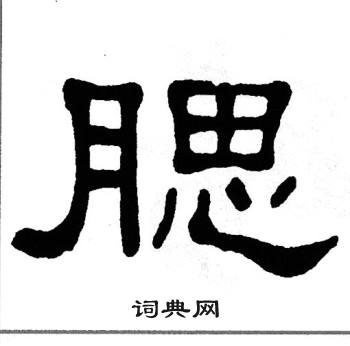 腮
词典网